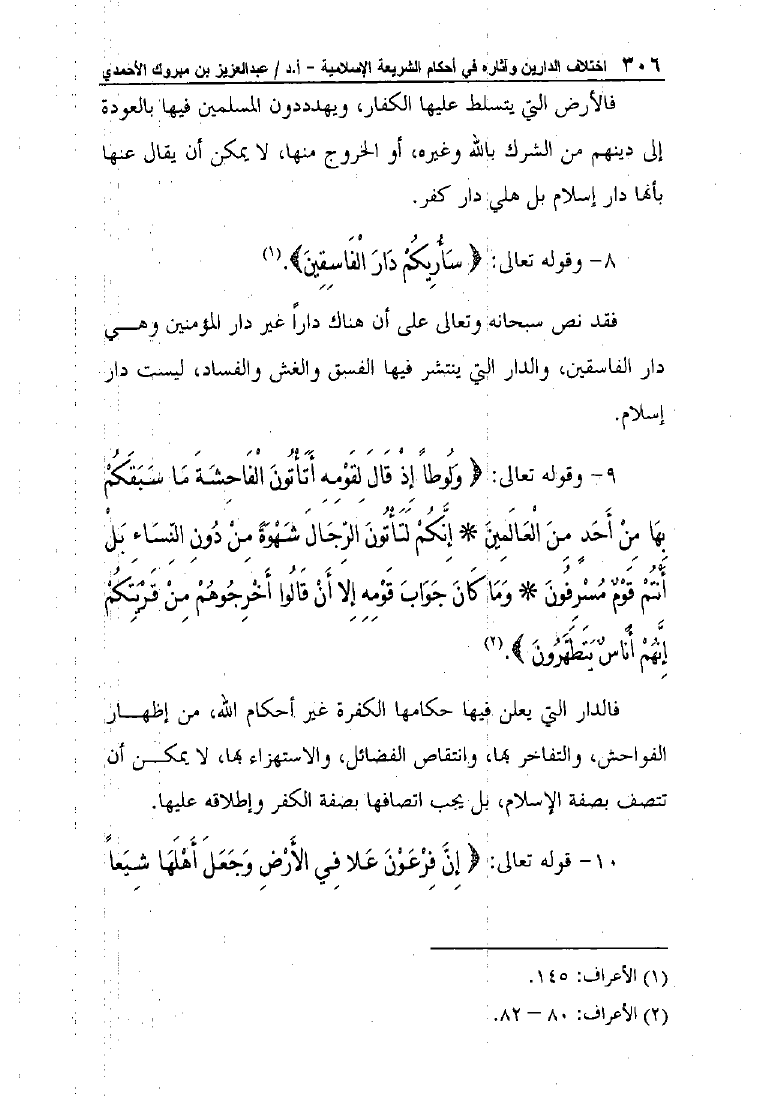 ٣٠٦ اختلاف الدارين وآثاره في أحكام الشريعة الإسلامية - أ.د/ عبدالعزيز بن مبروك الأحمدي
فالأرض التي يتسلط عليها الكفار، ويهددون المسلمين فيها بالعودة
إلى دينهم من الشرك بالله وغيره، أو الخروج منها، لا يمكن أن يقال عنها
بأنها دار إسلام بل هلي دار كفر.
٨- وقوله تعالى: ﴿ سَأُرِيكُمْ دَارَ الْفَاسِقِينَ﴾.(١)
فقد نص سبحانه وتعالى على أن هناك داراً غير دار المؤمنين وهـــي
دار الفاسقين، والدار التي ينتشر فيها الفسق والغش والفساد، ليست دار
إسلام.
٩- وقوله تعالى: ﴿ وَلُوطاً إِذْ قَالَ لِقَوْمِهِ أَتَأْتُونَ الْفَاحِشَةَ مَا سَبَقَكُمْ
بِهَا مِنْ أَحَدٍ مِنَ الْعَالَمِينَ * إِنَّكُمْ لَتَأْتُونَ الرِّجَالَ شَهْوَةً مِنْ دُونِ النِّسَاءِ بَلْ
أَنْتُمْ قَوْمٌ مُسْرِفُونَ * وَمَا كَانَ جَوَابَ قَوْمِهِ إِلا أَنْ قَالُوا أَخْرِجُوهُمْ مِنْ قَرْيَتِكُمْ
إِنَّهُمْ أُنَاسٌ يَتَطَهَّرُونَ ﴾.(٢)
فالدار التي يعلن فيها حكامها الكفرة غير أحكام الله، من إظهـــار
الفواحش، والتفاخر بها، وانتقاص الفضائل، والاستهزاء بها، لا يمكـــن أن
تتصف بصفة الإسلام، بل يجب اتصافها بصفة الكفر وإطلاقه عليها.
١٠- قوله تعالى: ﴿ إِنَّ فِرْعَوْنَ عَلا فِي الأَرْضِ وَجَعَلَ أَهْلَهَا شِيَعاً
(١) الأعراف: ١٤٥.
(٢) الأعراف: ٨٠ – ٨٢.